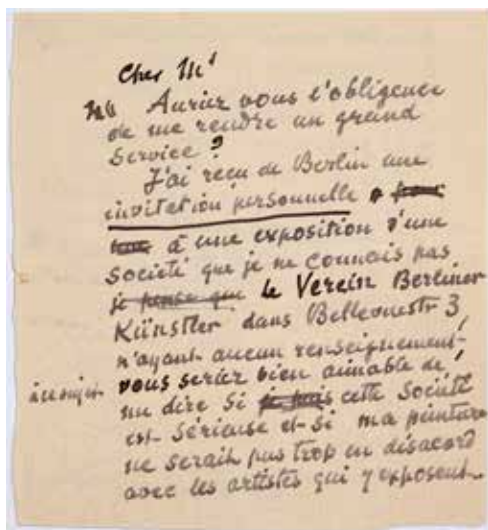 Cher Mr
Auriez vous l'obligence
de me rendre un grand
Service ?
J'ai reçu de Berlin une
invitation personnelle
à une exposition d'une
Société que je ne connais pas
je pense que le Verein Berliner
Künstler dans Bellevuestr 3,
n'ayant aucun renseignement
à ce sujet vous seriez bien aimable de
me dire Si je puis cette Société
est Sérieuse et si ma peinture
ne serait pas trop en désacord
avec les artistes qui y exposent